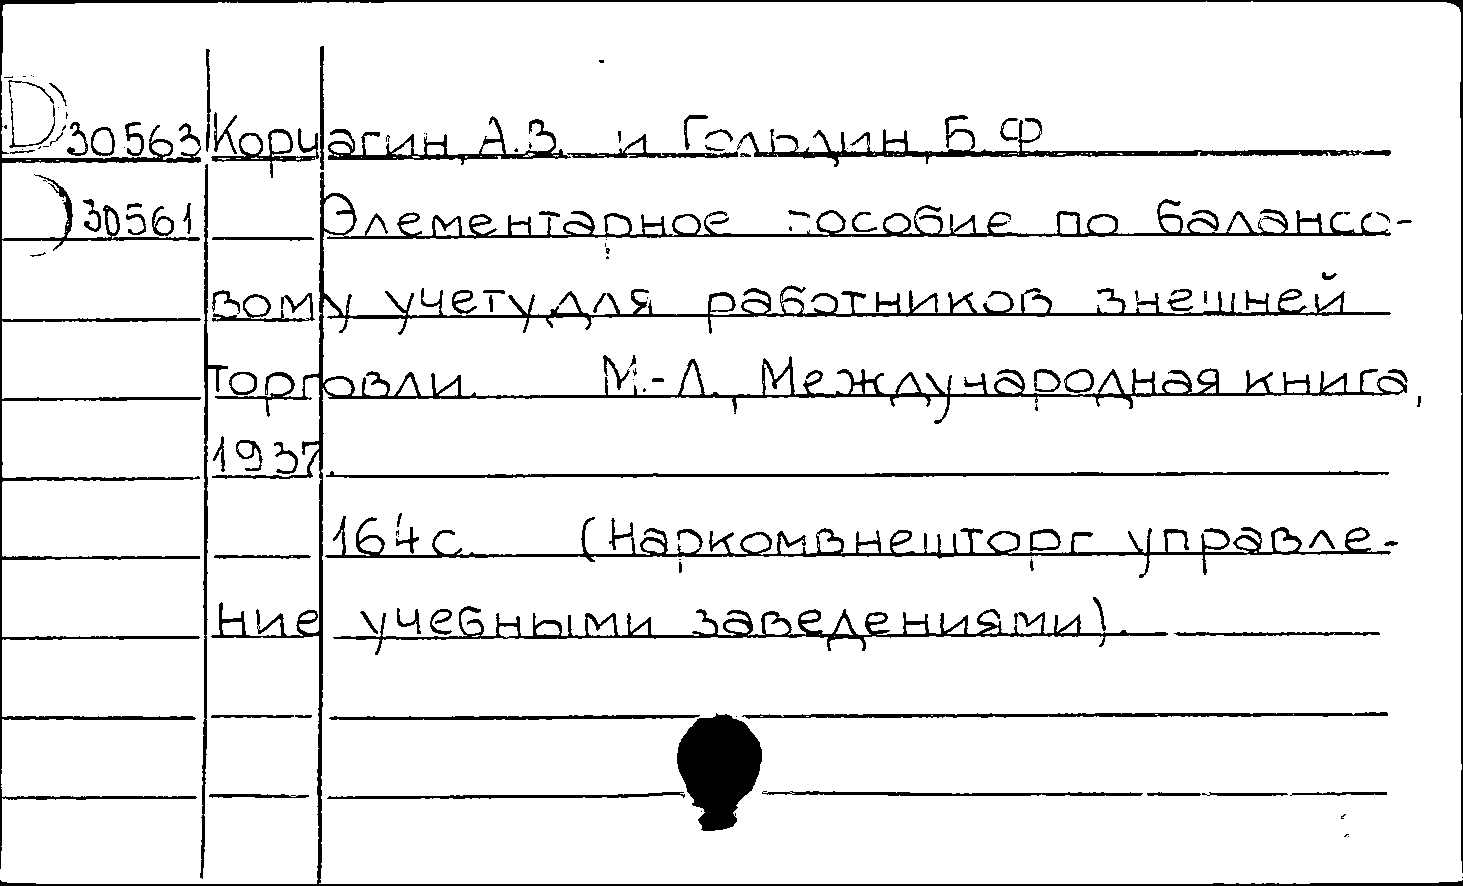 D 30563 Корчагин, А.В. и Гольдин, Б.Ф
30561 Элементарное пособие по балансо-
вому учету для работников внешней
торговли. М.-Л., Международная книга,
1937.
164 с. (Наркомвнешторг управле-
ние учебными заведениями).